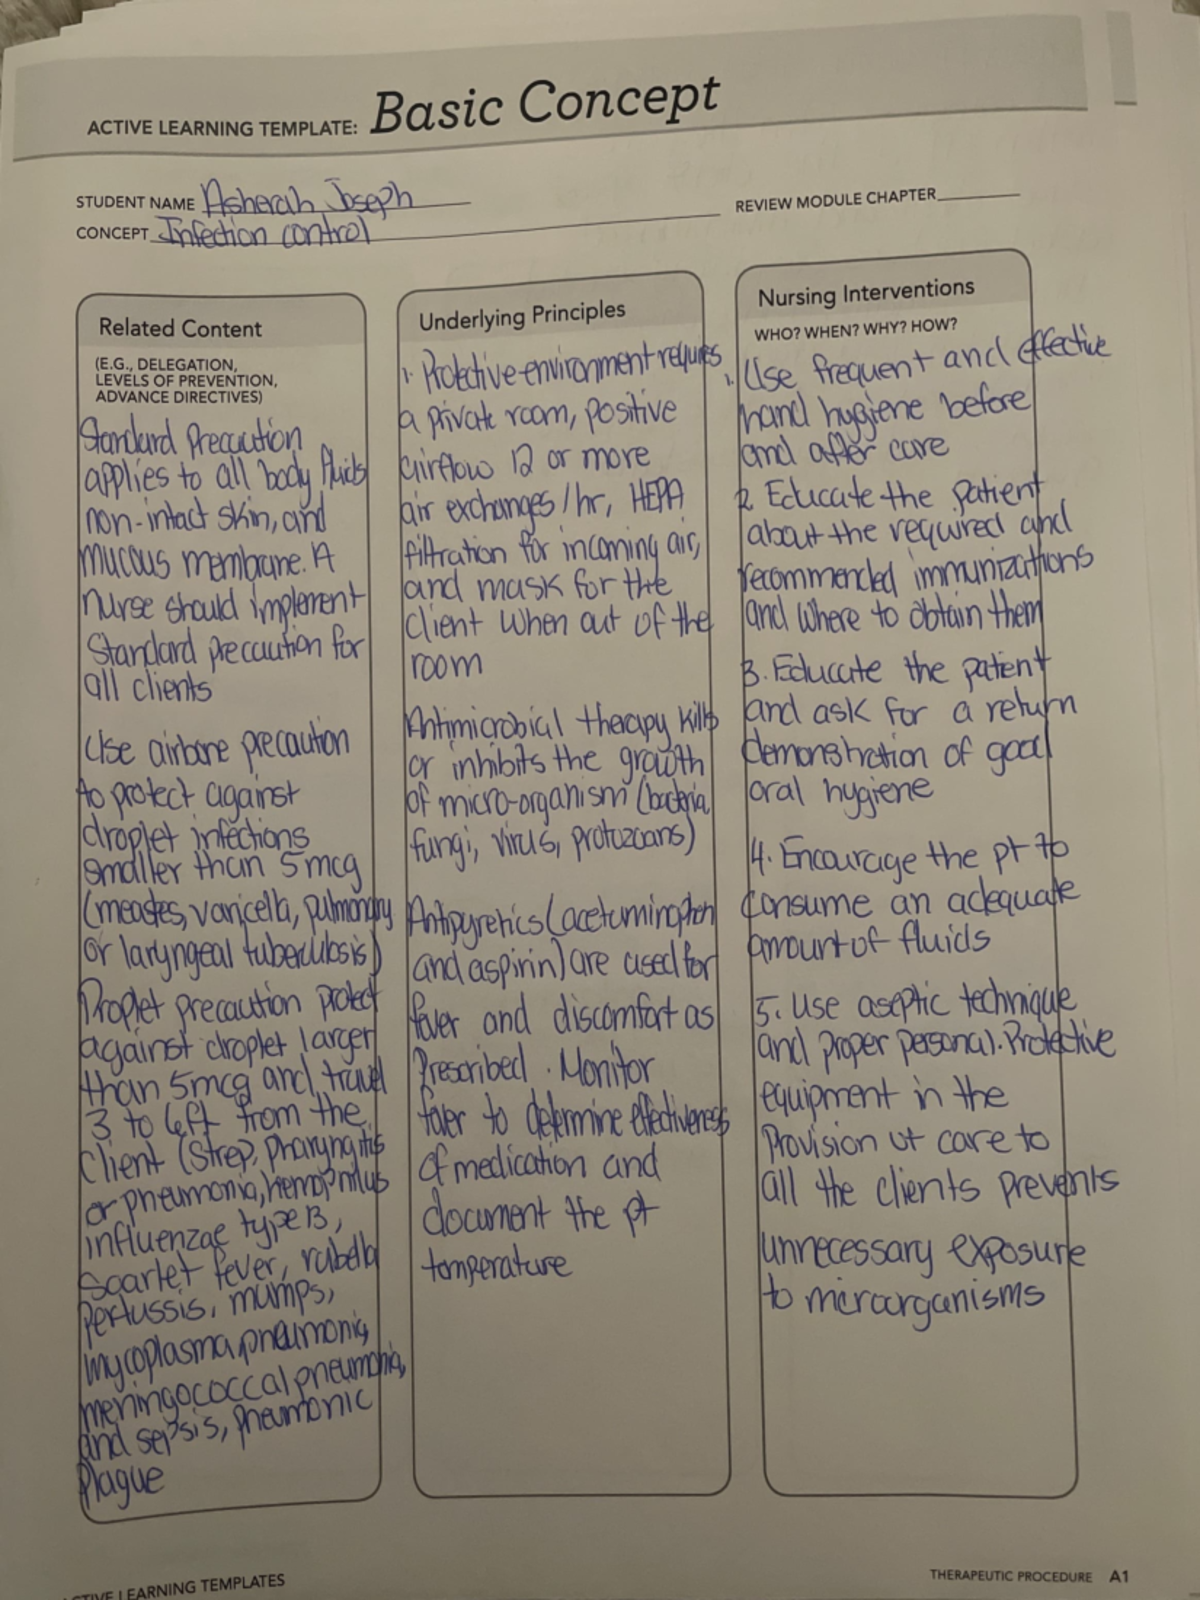 ACTIVE LEARNING TEMPLATE: Basic Concept
STUDENT NAME Asherah Joseph
REVIEW MODULE CHAPTER
CONCEPT Infection control
Related Content
(E.G., DELEGATION,
LEVELS OF PREVENTION,
ADVANCE DIRECTIVES)
Standard Precaution
applies to all body fluids
non-intact skin, and
mucous membrane. A
nurse should implement
Standard precaution for
all clients
Use airbone precaution
to protect against
droplet infections
smaller than 5 mcg
(meastes, varicella, pulmonary
or laryngeal tuberculosis)
Droplet precaution protect
against droplet larger
than 5mcg and travel
3 to 6ft from the
client (Strep. pharyngitis
or pneumonia, hemophilus
influenzae type B,
Scarlet fever, rubella
pertussis, mumps,
mycoplasma pneumonia,
meningococcal pneumonia,
and sepsis, pneumonic
Plague
Underlying Principles
1. Protective environment requires
a private room, positive
airflow 12 or more
air exchanges/hr, HEPA
filtration for incoming air,
and mask for the
client when out of the
room
Antimicrobial therapy kills
or inhibits the growth
of micro-organism (bacteria,
fungi, virus, protozoans)
Antipyretics (acetuminophen
and aspirin) are used for
fever and discomfort as
Prescribed. Monitor
fever to determine effectiveness
of medication and
document the pt
temperature
Nursing Interventions
WHO? WHEN? WHY? HOW?
1. Use frequent and effective
hand hygiene before
and after care
2. Educate the patient
about the required and
recommended immunizations
and where to obtain them
3. Educate the patient
and ask for a return
demonstration of good
oral hygiene
4. Encourage the pt to
consume an adequate
amount of fluids
5. Use aseptic technique
and proper personal. Protective
equipment in the
Provision of care to
all the clients prevents
unnecessary exposure
to microorganisms
ACTIVE LEARNING TEMPLATES
THERAPEUTIC PROCEDURE A1